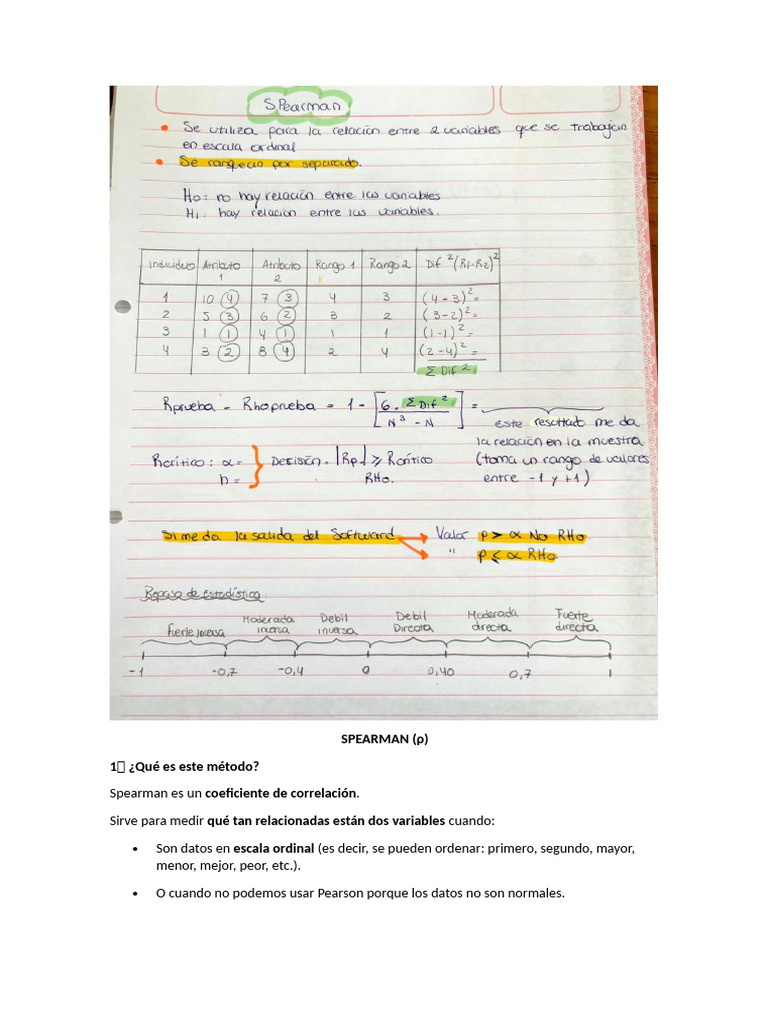 SPearman
• Se utiliza para la relación entre 2 variables que se trabajan
en escala ordinal
• Se ranquean por separado.
Ho: no hay relación entre las variables
H1: hay relación entre las variables.
Individuo Atributo 1 Atributo 2 Rango 1 Rango 2 Dif ² (R1-R2)²
1 10 4 7 3 4 3 (4-3)²=
2 5 3 6 2 3 2 (3-2)²=
3 1 1 4 1 1 1 (1-1)²=
4 3 2 8 4 2 4 (2-4)²=
Σ Dif ²
Rprueba = Rhoprueba = 1 - [6. Σ Dif ² / N³ - N] =
este resultado me da
la relación en la muestra
(toma un rango de valores
entre -1 y +1)
Rcrítico: α= n= } Decisión. |Rp| ≥ Rcrítico
RHo.
Si me da la salida del Softward → Valor p > α No RHo.
" p ≤ α RHo.
Repaso de Estadística
Fuerte Inversa Moderada inversa Debil inversa Debil Directa Moderada directa Fuerte directa
-1 -0,7 -0,4 0 0,40 0,7 1
SPEARMAN (ρ)
1 ¿Qué es este método?
Spearman es un coeficiente de correlación.
Sirve para medir qué tan relacionadas están dos variables cuando:
• Son datos en escala ordinal (es decir, se pueden ordenar: primero, segundo, mayor,
menor, mejor, peor, etc.).
• O cuando no podemos usar Pearson porque los datos no son normales.